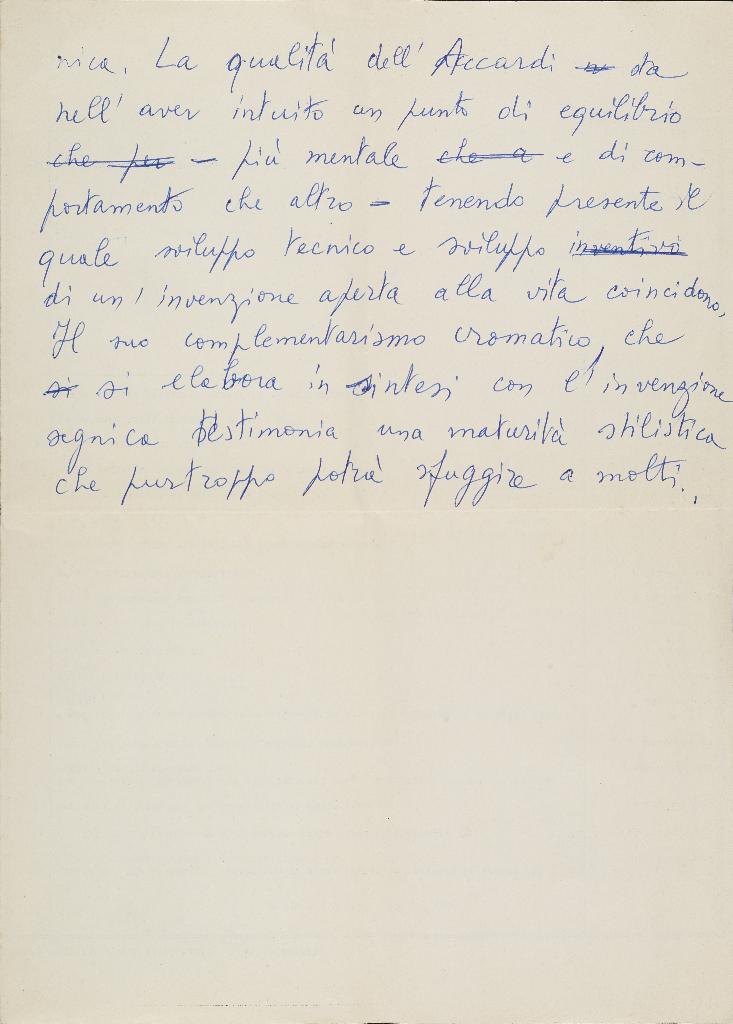 nica. La qualità dell'Accardi sta
nell'aver intuito un punto di equilibrio
che per – più mentale che a e di com–
portamento che altro – tenendo presente il
quale sviluppo tecnico e sviluppo inventivo
di un'invenzione aperta alla vita coincidono.
Il suo complementarismo cromatico, che
si si elabora in sintesi con l'invenzione
segnica testimonia una maturità stilistica
che purtroppo potrà sfuggire a molti.